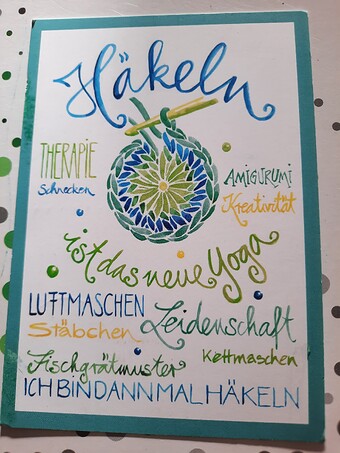 Häkeln
THERAPIE
Schnecken
AMIGURUMI
Kreativität
ist das neue Yoga
LUFTMASCHEN
Leidenschaft
Stäbchen
Kettmaschen
Fischgrätmuster
ICH BIN DANN MAL HÄKELN